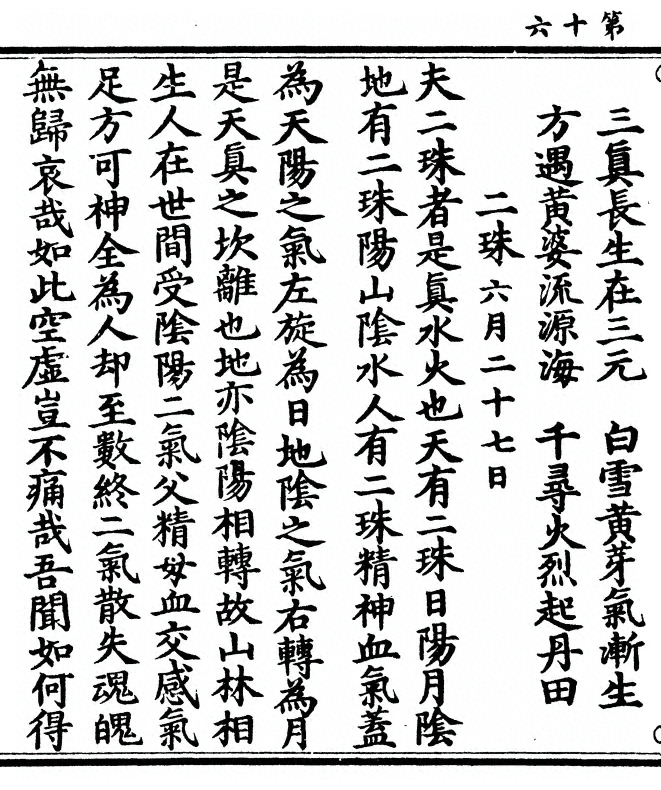 第十六
三眞長生在三元　白雪黃芽氣漸生
方遇黃婆流源海　千尋火烈起丹田
二珠六月二十七日
夫二珠者是眞水火也天有二珠日陽月陰
地有二珠陽山陰水人有二珠精神血氣蓋
為天陽之氣左旋為日地陰之氣右轉為月
是天眞之坎離也地亦陰陽相轉故山林相
生人在世間受陰陽二氣父精母血交感氣
足方可神全為人却至數終二氣散失魂魄
無歸哀哉如此空虛豈不痛哉吾聞如何得